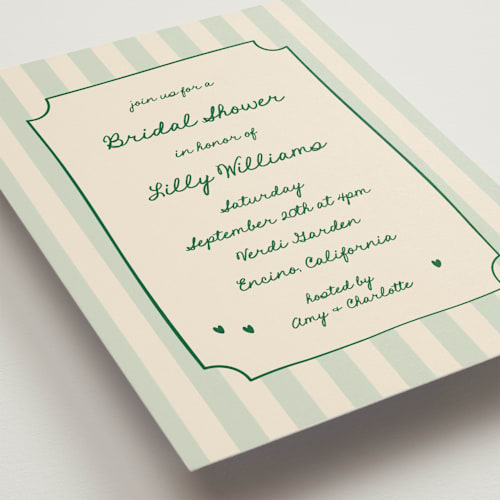 join us for a
Bridal Shower
in honor of
Lilly Williams
Saturday
September 20th at 4pm
Verdi Garden
Encino, California
hosted by
Amy + Charlotte